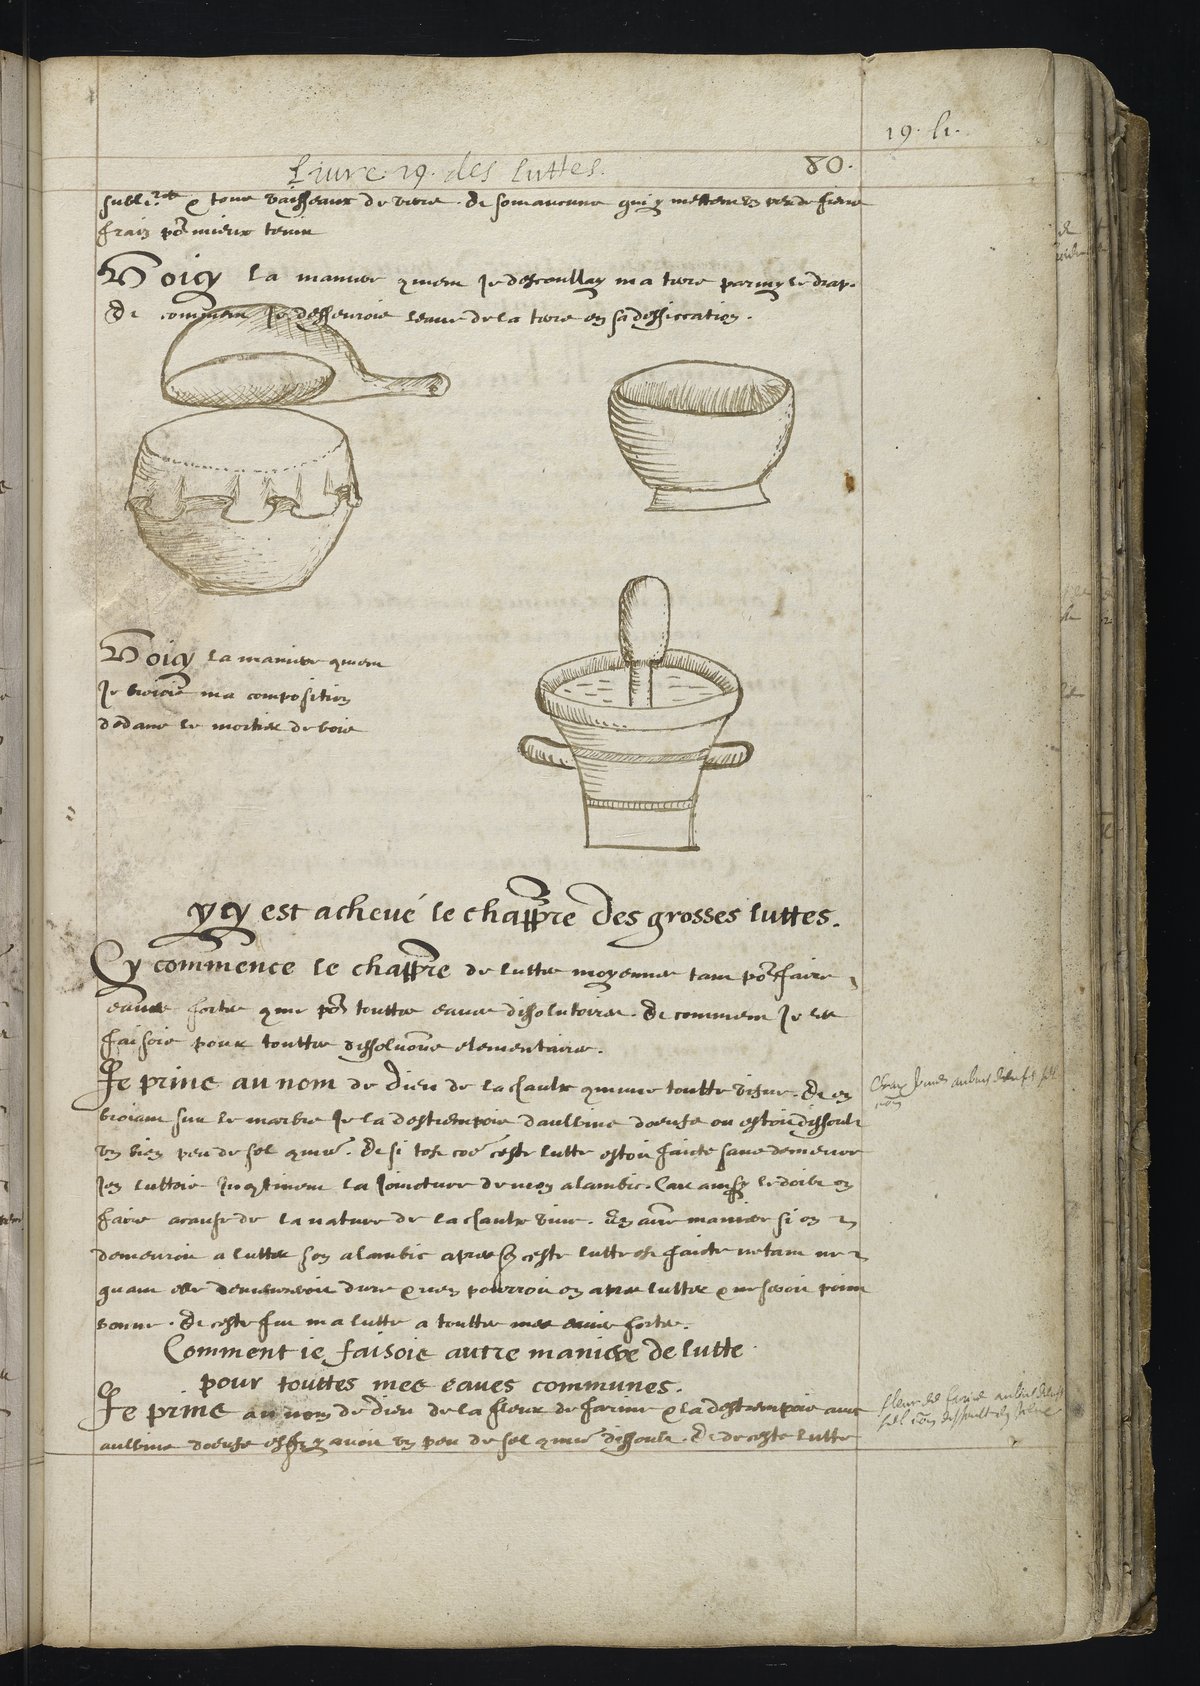 19. li.
Livre 19. des luttes.
80.
tous vaisseaux de verre. Et sont aucuns qui y mettent un peu de fiens
frais pr mieux tenir
Voicy la maniere comment Je descoullay ma terre parmy le drap.
Et comment Je desseuroie leaue de la terre en sa dessiccation.
Voicy la maniere comment
Je broioie ma composition
dedans le mortier de bois
ycy est achevé le chappre des grosses luttes.
Cy commence le chappre de luttes moyennes tant pour faire
eaues fortes que pr touttes eaues dissolutoires. Et comment Je les
faisoie pour touttes dissolutions elementaires.
Je prins au nom de Dieu de la chaulx comme toutte vifve. Et en
broiant sur le marbre Je la destrempoie daulbins doeufs ou estoit dissoult
un bien peu de sel comun. Et si tost come ceste lutte estoit faicte sans demeure
Jen luttoie Incontinent la Joincture de mon alambic. Car ainsy le doibt on
faire a cause de la nature de la chaulx vive. En autre maniere si on
demeuroit a lutter son alambic apres que ceste lutte est faicte
elle demeureroit dure & rien pourroit on apres lutter & ne seroit point
bonne. Et ceste fut ma lutte a touttes mes eaues fortes.
Comment ie faisoie autre maniere de lutte
pour touttes mes eaues communes.
Je prins au nom de Dieu de la fleur de farine & la destrempoie avec
aulbins doeufs esquelz y avoit un peu de sel comun dissoult. Et de ceste lutte
fleur de farine aulbins doeufs
sel comun dissoult